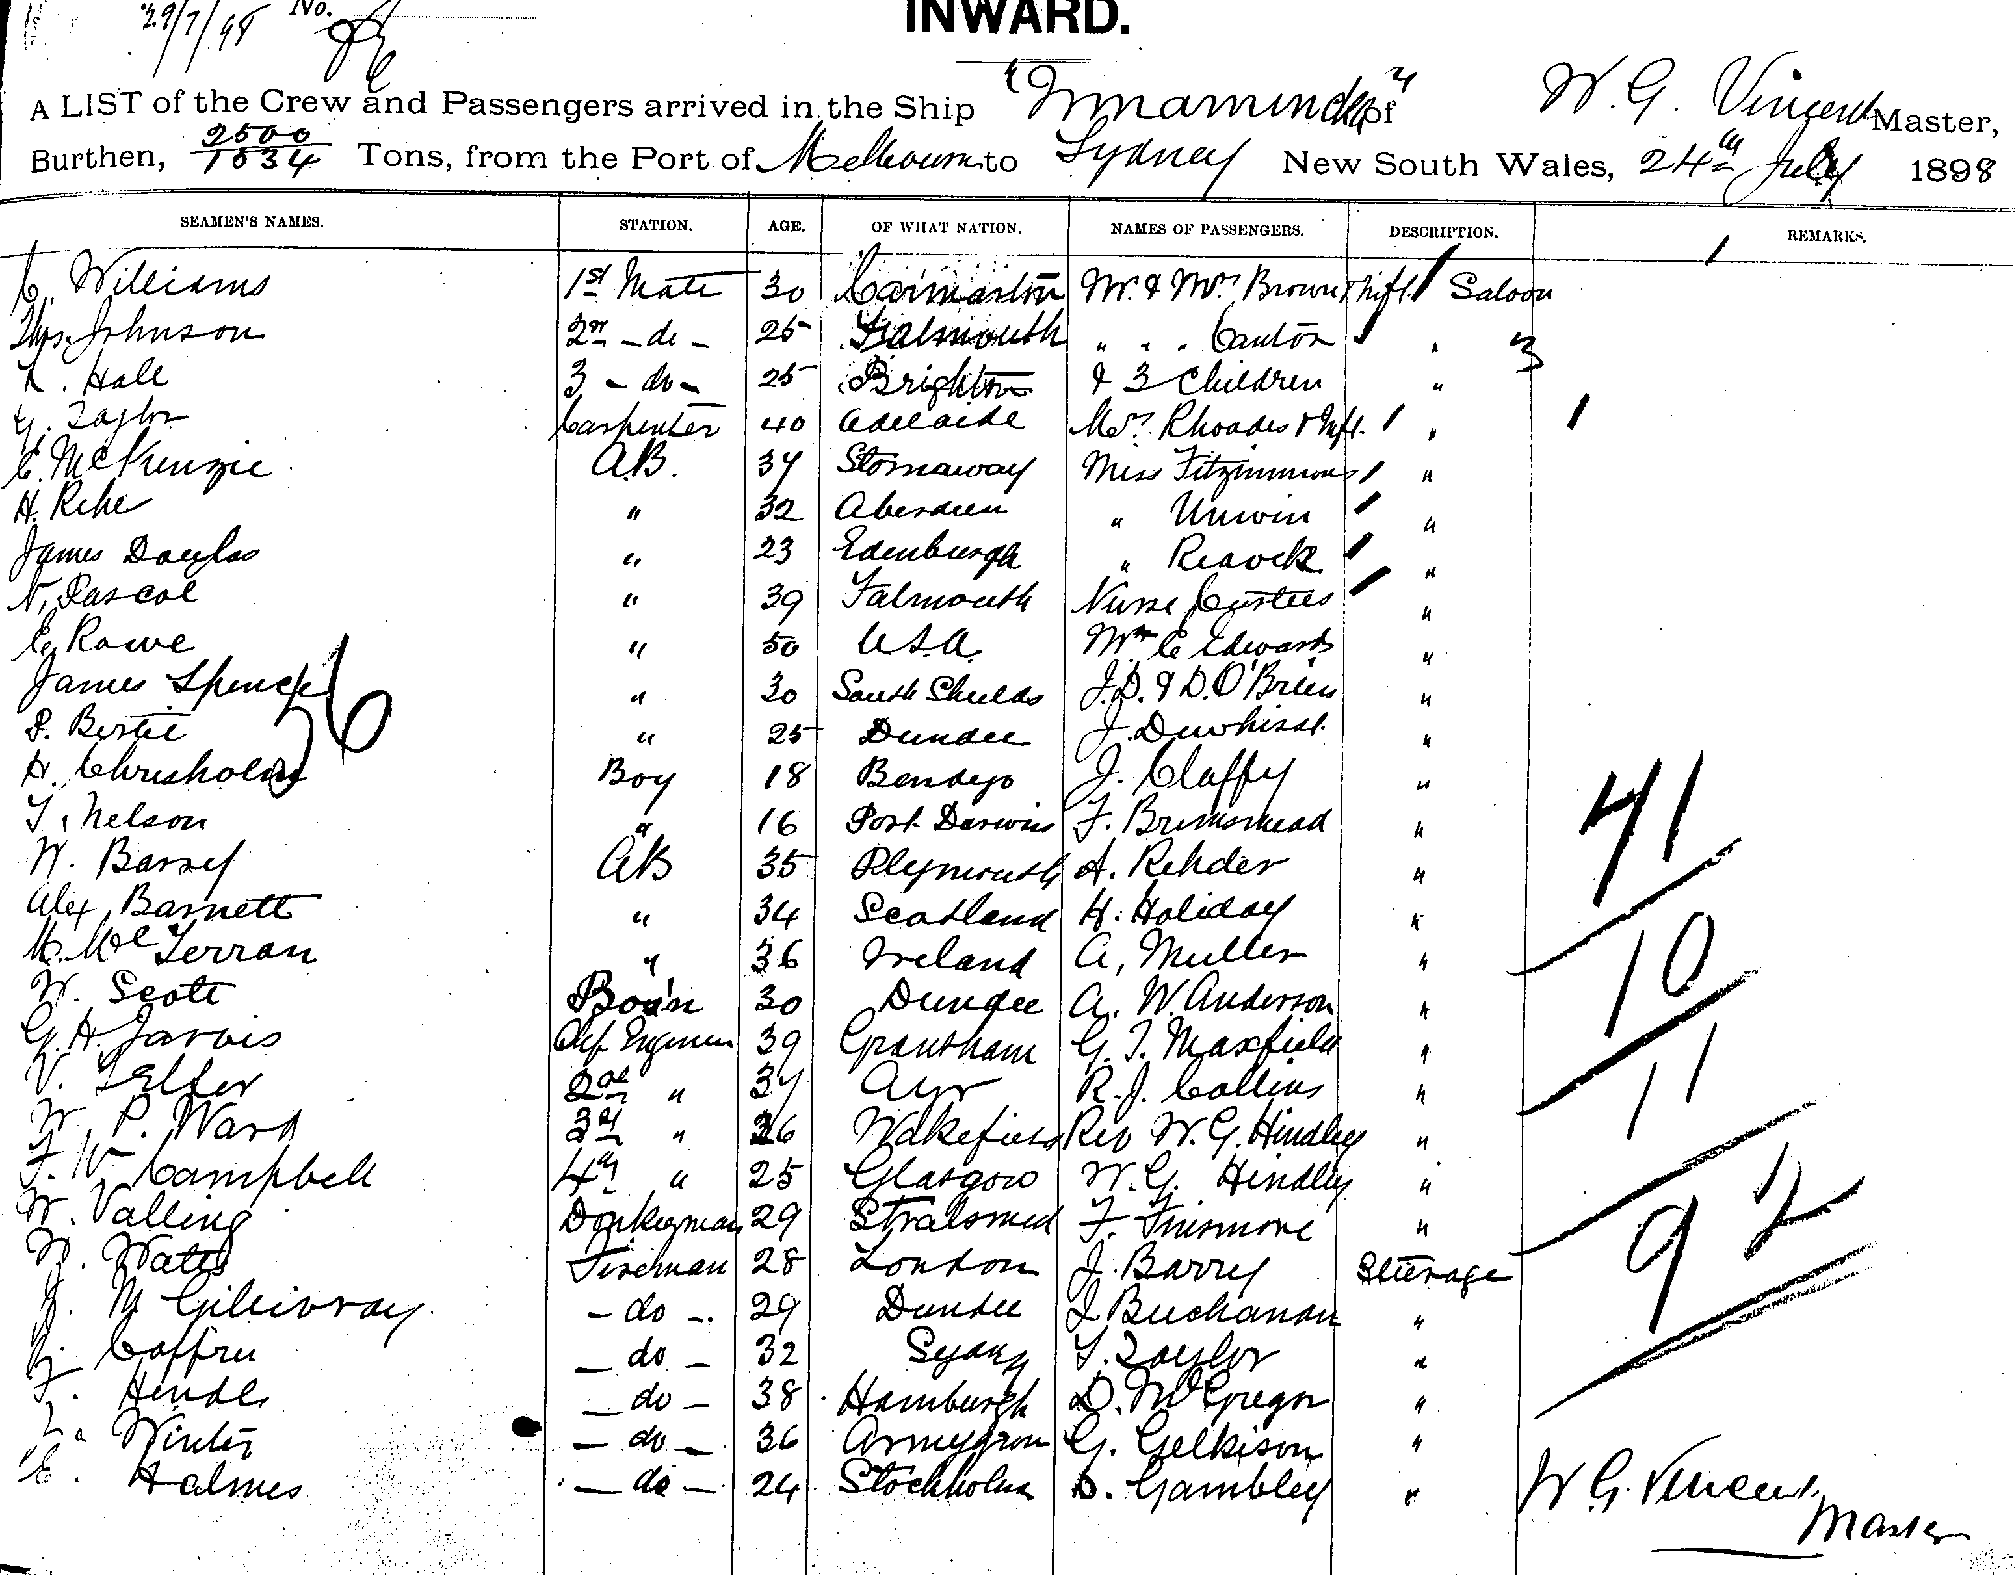 29/7/98 No.
INWARD.
A LIST of the Crew and Passengers arrived in the Ship "Innamincka" of W. G. Vincent Master,
Burthen, 2500/1534 Tons, from the Port of Melbourne to Sydney New South Wales, 24th July 1898
SEAMEN'S NAMES. STATION. AGE. OF WHAT NATION. NAMES OF PASSENGERS. DESCRIPTION. REMARKS.
C. Williams 1st Mate 30 Carmarton Mr. & Mrs Brown & Inft. Saloon
Thos. Johnson 2nd - do - 25 Falmouth " " " Cantor " 3
Hall 3 - do - 25 Brighton & 3 Children "
G. Taylor Carpenter 40 Adelaide Mrs. Rhoades & Inft. "
C. McKenzie A.B. 37 Stornaway Miss Fitzimmons "
H. Rehe " 32 Aberdeen " Unwin "
James Douglas " 23 Edenburgh " "
N. Pascoe " 39 Falmouth Nurse Custees "
E. Rowe " 50 U.S.A. Mr C Edwards "
James Spence " 30 South Shields J.D. & D. O'Brien "
P. Bertie " 25 Dundee J. Dewhirst "
H. Chrisholm Boy 18 Bendigo J. Claffy "
T. Nelson " 16 Port Darwin F. Brimsmead "
W. Barry AB 35 Plymouth A. Rehder "
Alex Barnett " 34 Scotland H. Holiday "
M. McTerran " 36 Ireland A. Muller "
W. Scott Bos'n 30 Dundee A. W. Anderson "
G. H. Jarvis Chf Engineer 39 Grantham G. T. Maxfield "
V. Telfer 2nd " 37 Ayr R. J. Collins "
W. P. Ward 3rd " 26 Wakefield Rev W. G. Hindley "
F. W. Campbell 4th " 25 Glasgow W. G. Hindley "
W. Valling Donkeyman 29 Stralsund F. Finsmore "
W. Wates Fireman 28 London J. Barry Steerage
J. McGilivray - do - 29 Dundee J Buchanan "
J. Caffrey - do - 32 Sydny T. Taylor "
F. Hendl - do - 38 Hamburgh D. McGregor "
Winter - do - 36 G. Gelkison "
C. Halmes - do - 24 Stockholm D. Gambley "
41
10
11
92
W G. Vincent
Master